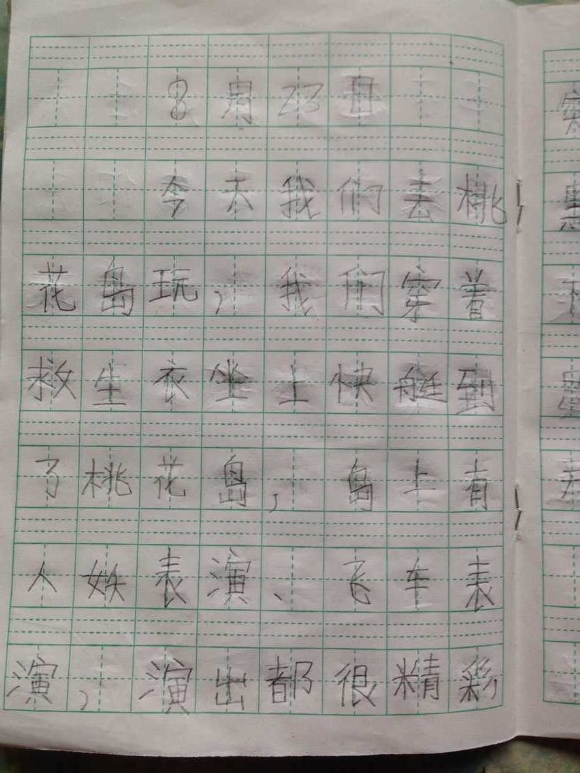 8月23日
今天我们去桃
花岛玩，我们穿着
救生衣坐上快艇到
了桃花岛，岛上有
人妖表演、飞车表
演，演出都很精彩，